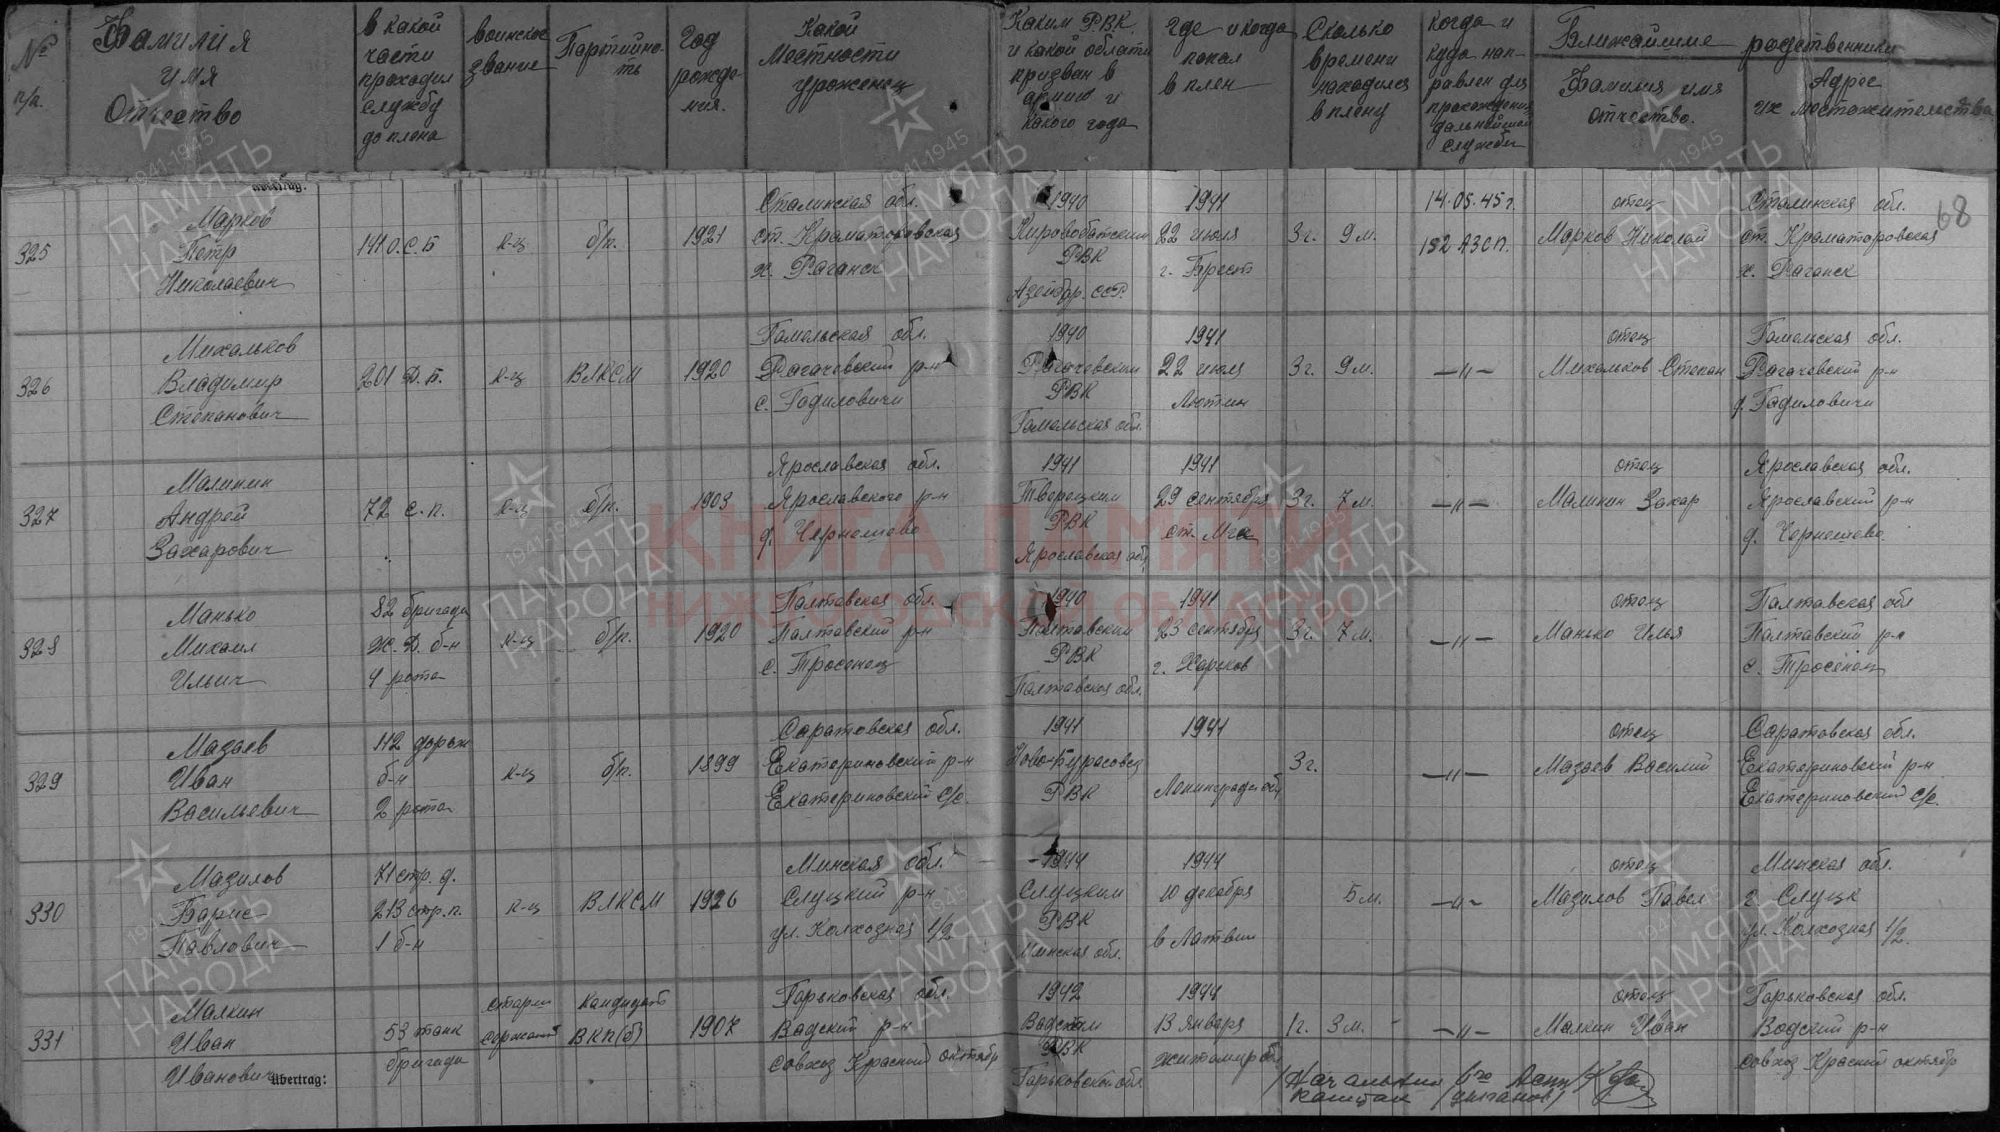 № п/п.
Фамилия имя Отчество
в какой части проходил службу до плена
воинское звание
Партийность
Год рождения.
Какой Местности уроженец
Каким РВК и какой области призван в армию и какого года
где и когда попал в плен
Сколько времени находился в плену
когда и куда направлен для прохождения дальнейшей службы
Ближайшие родственники
Фамилия имя отчество.
Адрес их местожительства
68
325
Марков
Петр
Николаевич
141 О.С.Б
к-ц
б/п.
1921
Сталинская обл.
ст. Краматоровская
х. Раганск
1940
Кировобатским
РВК
Азейбар. ССР.
1941
22 июля
г. Брест
3 г. 9 м.
14.05.45 г.
182 АЗСП.
отец
Марков Николай
Сталинская обл.
ст. Краматоровская
х. Раганск
326
Михальков
Владимир
Степанович
201 Д.Б.
к-ц
ВЛКСМ
1920
Гомельская обл.
Рагачевский р-н
с. Гадиловичи
1940
Рагачевским
РВК
Гомельская обл.
1941
22 июля
3 г. 9 м.
—„—
отец
Михальков Степан
Гомельская обл.
Рагачевский р-н
д. Гадиловичи
327
Малинин
Андрей
Захарович
72 с.п.
к-ц
б/п.
1903
Ярославская обл.
Ярославского р-н
д. Чернешево
1941
РВК
Ярославская обл.
1941
29 сентября
ст. Мга
3 г. 7 м.
—„—
отец
Малинин Захар
Ярославская обл.
Ярославский р-н
д. Чернешево
328
Манько
Михаил
Ильич
82 бригада
Ж.Д. б-н
4 рота
к-ц
б/п.
1920
Палтавская обл.
Палтавский р-н
с. Тросенец
1940
Палтавским
РВК
Палтавская обл.
1941
23 сентября
г. Харьков
3 г. 7 м.
—„—
отец
Манько Илья
Палтавская обл
Палтавский р-н
с. Тросенец
329
Мазаев
Иван
Васильевич
112 дорож
б-н
2 рота
к-ц
б/п.
1899
Саратовская обл.
Екатериновский р-н
Екатериновский с/с.
1941
Ново-Бурасовск
РВК
1941
Ленинград обл
3 г.
—„—
отец
Мазаев Василий
Саратовская обл.
Екатериновский р-н
Екатериновский с/с.
330
Мазилов
Барис
Павлович
71 стр. д.
213 стр. п.
1 б-н
к-ц
ВЛКСМ
1926
Минская обл.
Слуцкий р-н
ул. Колхозная 1/2
1944
Слуцким
РВК
Минская обл.
1944
10 декабря
в Латвии
5 м.
—„—
отец
Мазилов Павел
Минская обл.
г. Слуцк
ул. Колхозная 1/2.
331
Малкин
Иван
Иванович
53 танк
бригада
старш
сержант
Кандидат
ВКП(б)
1907
Горьковская обл.
Вадский р-н
совхоз Красный октябр
1942
Вадским
РВК
Горьковской обл
1944
13 января
Житомир обл
1 г. 3 м.
—„—
отец
Малкин Иван
Горьковская обл.
Водский р-н
совхоз Красний октябр
Übertrag:
КНИГА ПАМЯТИ
НИЖЕГОРОДСКОЙ ОБЛАСТИ
1941-1945
ПАМЯТЬ
НАРОДА